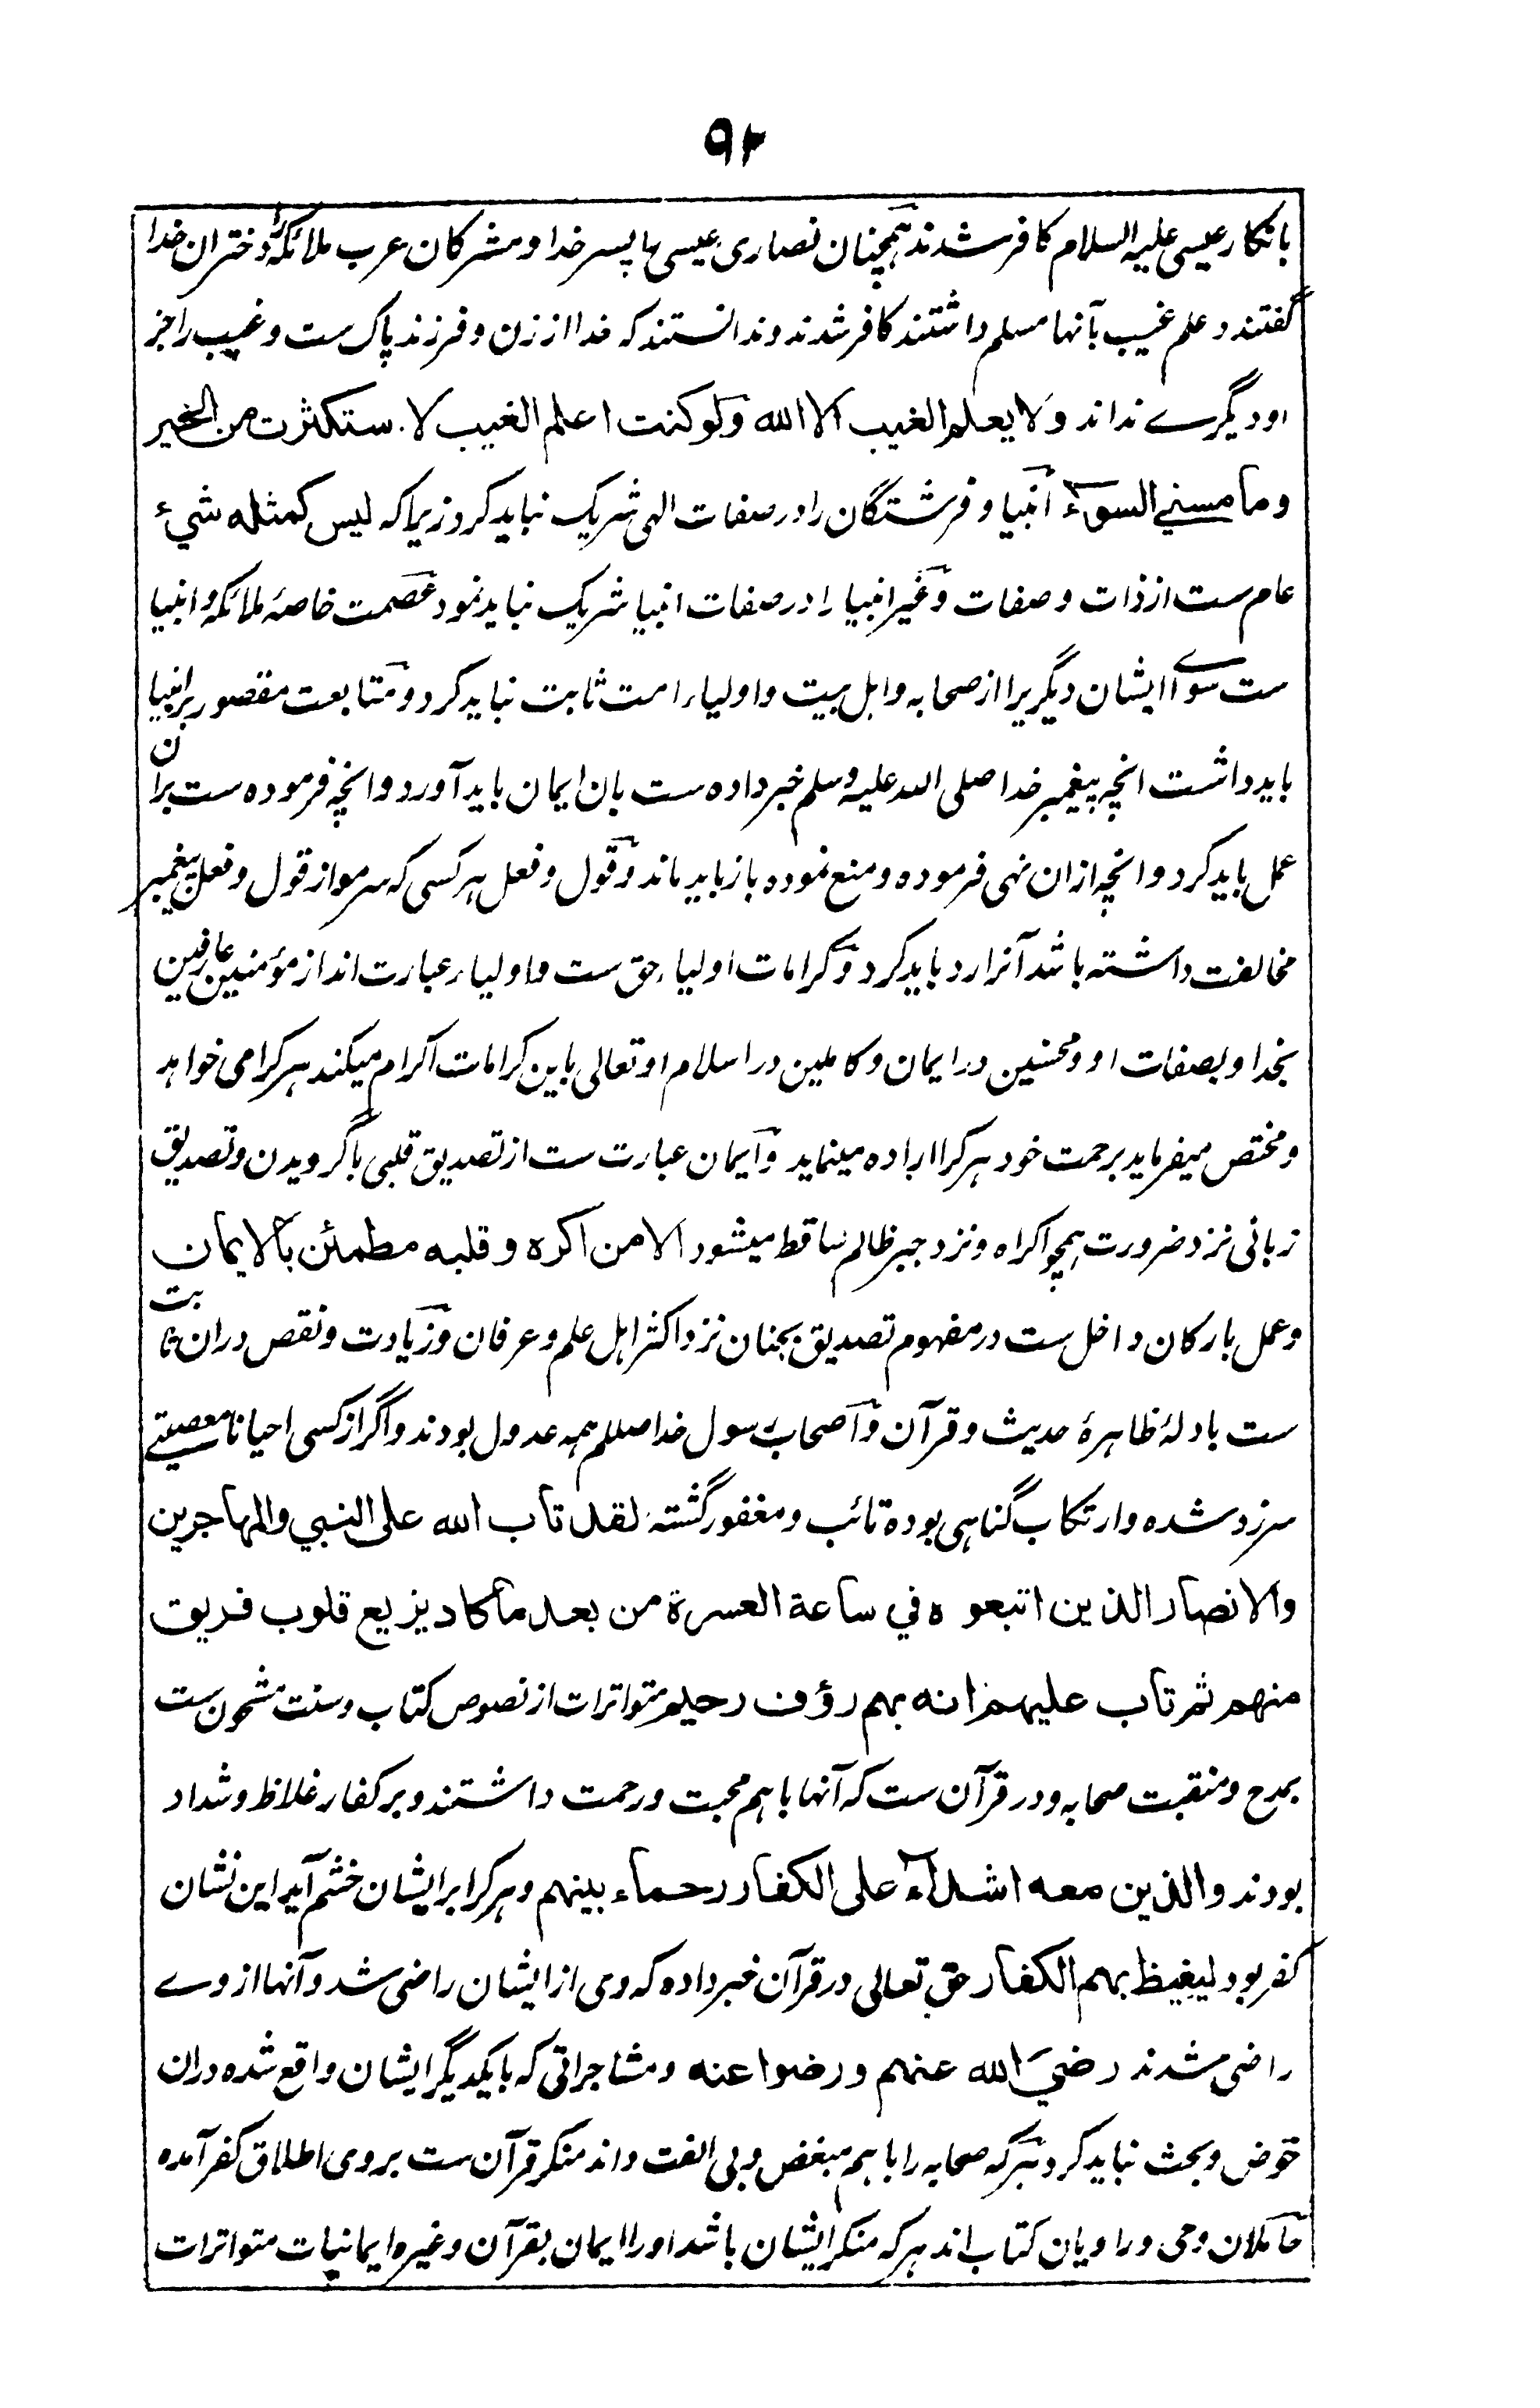 ۹۲
بانکار عیسی علیه السلام کافر شدند همچنان نصاری عیسی را پسر خدا و مشرکان عرب ملائکه را دختران خدا
گفتند و علم غیب بآنها مسلم داشتند کافر شدند و ندانستند که خدا از زن و فرزند پاک ست و غیب را جز
او دیگرے نداند ولا یعلم الغیب الا الله ولو کنت اعلم الغیب لا ستکثرت من الخیر
وما مسنی السوء انبیا و فرشتگان را در صفات الهی شریک نباید کرد زیرا که لیس کمثله شیء
عام ست از ذات و صفات و غیر انبیا را در صفات انبیا شریک نباید نمود عصمت خاصهٔ ملائکه و انبیا
ست سوای ایشان دیگریرا از صحابه و اهل بیت و اولیاء امت ثابت نباید کرد و متابعت مقصور بر انبیا
باید داشت انچه پیغمبر خدا صلی الله علیه وسلم خبر داده ست بان ایمان باید آورد و انچه فرموده ست بران
عمل باید کرد و انچه ازان نهی فرموده و منع نموده باز باید ماند و قول و فعل هر کسی که سر مو از قول و فعل پیغمبر
مخالفت داشته باشد آنرا رد باید کرد و کرامات اولیاء حق ست و اولیاء عبارت اند از مؤمنین عارفین
بخدا و بصفات او و محسنین در ایمان و کاملین در اسلام او تعالی باین کرامات اکرام میکند هر کرا می خواهد
و مختص میفرماید برحمت خود هر کرا اراده مینماید و ایمان عبارت ست از تصدیق قلبی با گرویدن و تصدیق
زبانی نزد ضرورت همچو اکراه و نزد جبر ظالم ساقط میشود الا من اکره وقلبه مطمئن بالایمان
و عمل بارکان داخل ست در مفهوم تصدیق بجنان نزد اکثر اهل علم و عرفان و زیادت و نقص دران ثابت
ست بادلهٔ ظاهرهٔ حدیث و قرآن و اصحاب رسول خدا صللم همه عدول بودند و اگر از کسی احیانا معصیتے
سرزد شده و ارتکاب گناهی بوده تائب و مغفور گشته لقد تاب الله علی النبی والمهاجرین
والانصار الذین اتبعوه فی ساعة العسرة من بعد ما کاد یزیغ قلوب فریق
منهم ثم تاب علیهم انه بهم رؤف رحیم متواترات از نصوص کتاب و سنت مشحون ست
بمدح و منقبت صحابه و در قرآن ست که آنها باهم محبت و رحمت داشتند و بر کفار غلاظ و شداد
بودند والذین معه اشداء علی الکفار رحماء بینهم و هر کرا بر ایشان خشم آید این نشان
کفر بود لیغیظ بهم الکفار حق تعالی در قرآن خبر داده که وی از ایشان راضی شد و آنها از وے
راضی شدند رضی الله عنهم ورضوا عنه و مشاجراتی که با یکدیگر ایشان واقع شده دران
خوض و بحث نباید کرد هر که صحابه را باهم مبغض و بی الفت داند منکر قرآن ست بر وی اطلاق کفر آمده
حاملان وحی و راویان کتاب اند هر که منکر ایشان باشد او را ایمان بقرآن و غیره ایمانیات متواترات